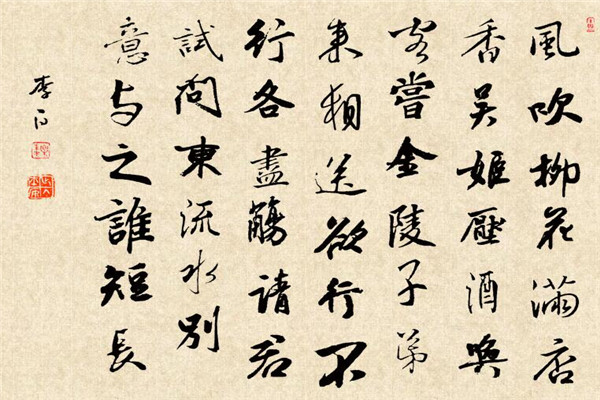 風吹柳花滿店
香吳姬壓酒喚
客嘗金陵子弟
来相送欲行不
行各盡觴請君
試問東流水別
意与之誰短長
李